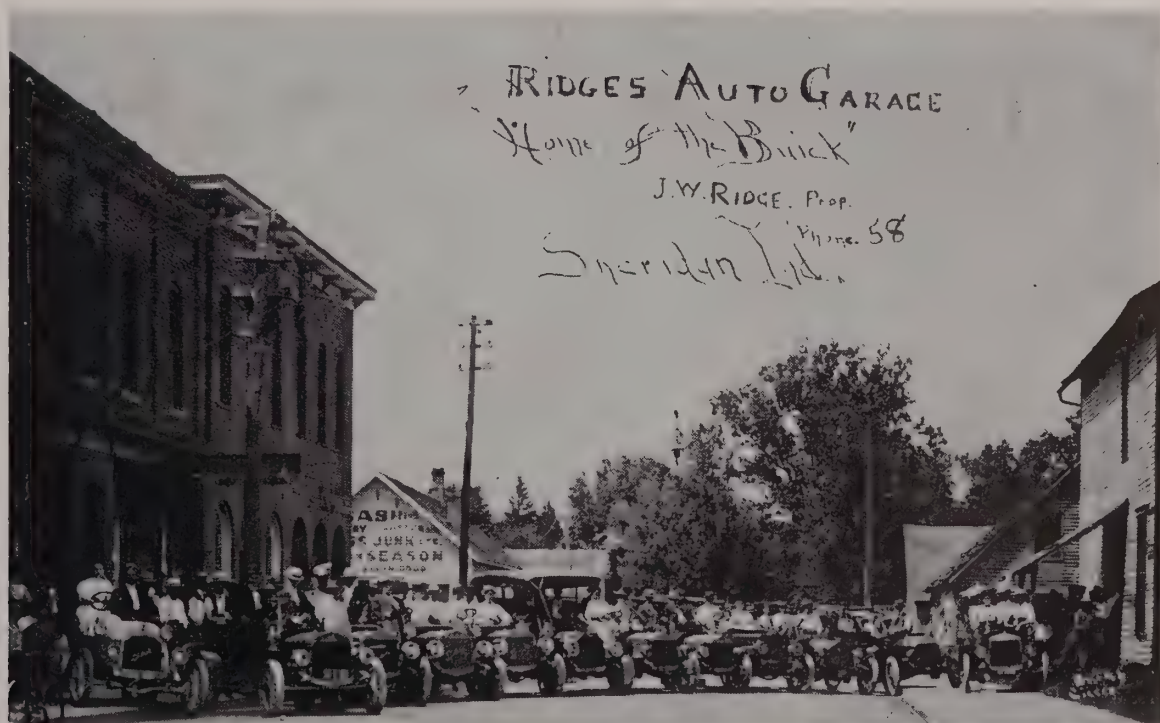 RIDGES AUTO GARAGE
"Home of the Buick"
J.W. RIDGE. Prop.
Phone. 58
Sheridan Ind.
JUNK
SEASON